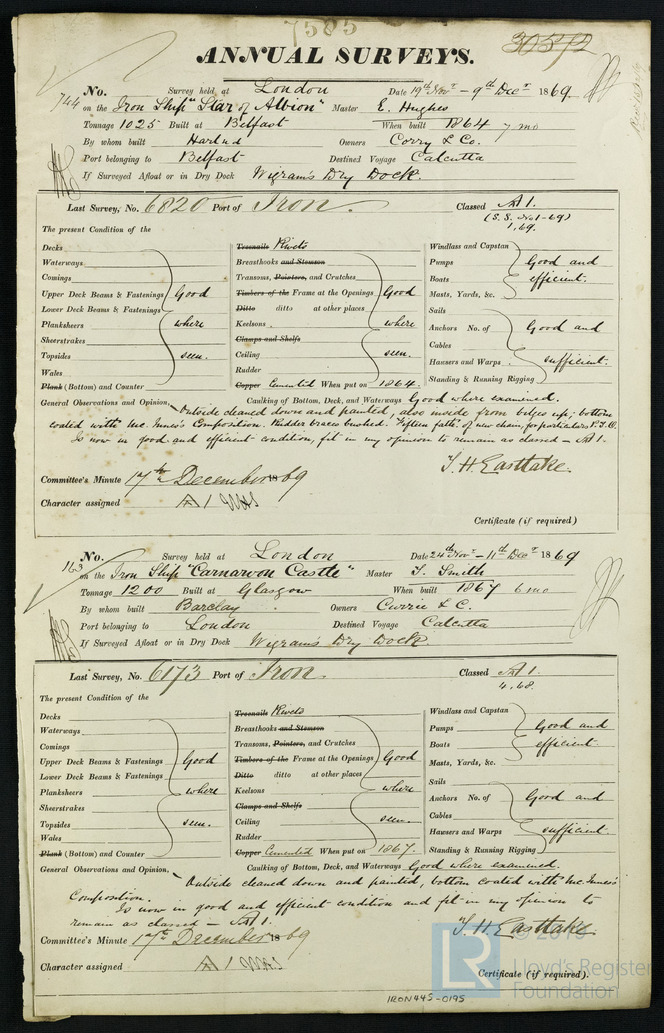 7585
30572
ANNUAL SURVEYS.
No. 744 Survey held at London Date 19th Novr - 9th Decr 1869
on the Iron Ship "Star of Albion" Master E. Hughes
Tonnage 1025 Built at Belfast When built 1864 7 mo
By whom built Harlnd Owners Corry & Co.
Port belonging to Belfast Destined Voyage Calcutta
If Surveyed Afloat or in Dry Dock Wigram's Dry Dock.
Last Survey, No. 6820 Port of Iron. Classed A1.
(S.S. No1-69)
1,69.
The present Condition of the
Decks
Waterways
Comings
Upper Deck Beams & Fastenings
Lower Deck Beams & Fastenings
Planksheers
Sheerstrakes
Topsides
Wales
Plank (Bottom) and Counter
Good
where
seen.
Treenails Rivets
Breasthooks and Stemson
Transoms, Pointers, and Crutches
Timbers of the Frame at the Openings
Ditto ditto at other places
Keelsons
Clamps and Shelfs
Ceiling
Rudder
Copper Cemented When put on 1864.
Good
where
seen.
Windlass and Capstan
Pumps
Boats
Masts, Yards, &c.
Good and
efficient.
Sails
Anchors No. of
Cables
Hawsers and Warps
Standing & Running Rigging
Good and
sufficient.
General Observations and Opinion, Caulking of Bottom, Deck, and Waterways Good where examined.
Outside cleaned down and painted, also inside from bilges up; bottom
coated with McInnes's Composition. Rudder braces bushed. Fifteen faths of new chain, for particulars
Is now in good and efficient condition, fit in my opinion to remain as classed - A1.
T. H. Easttake.
Committee's Minute 17th December 1869
Character assigned A1
Certificate (if required)
No. 163 Survey held at London Date 24th Novr - 11th Decr 1869
on the Iron Ship "Carnarvon Castle" Master T. Smith
Tonnage 1200 Built at Glasgow When built 1867 6 mo
By whom built Barclay Owners Currie & C.
Port belonging to London Destined Voyage Calcutta
If Surveyed Afloat or in Dry Dock Wigram's Dry Dock
Last Survey, No. 6173 Port of Iron. Classed A1.
4,68.
The present Condition of the
Decks
Waterways
Comings
Upper Deck Beams & Fastenings
Lower Deck Beams & Fastenings
Planksheers
Sheerstrakes
Topsides
Wales
Plank (Bottom) and Counter
Good
where
seen.
Treenails Rivets
Breasthooks and Stemson
Transoms, Pointers, and Crutches
Timbers of the Frame at the Openings
Ditto ditto at other places
Keelsons
Clamps and Shelfs
Ceiling
Rudder
Copper Cemented When put on 1867.
Good
where
seen.
Windlass and Capstan
Pumps
Boats
Masts, Yards, &c.
Good and
efficient.
Sails
Anchors No. of
Cables
Hawsers and Warps
Standing & Running Rigging
Good and
sufficient.
General Observations and Opinion, Caulking of Bottom, Deck, and Waterways Good where examined.
Outside cleaned down and painted, bottom coated with McInnes's
Composition.
Is now in good and efficient condition and fit in my opinion to
remain as classed - A1.
T. H. Easttake.
Committee's Minute 17th December 1869
Character assigned A1
Certificate (if required).
LR
Lloyd's Register
Foundation
IRON445-0195